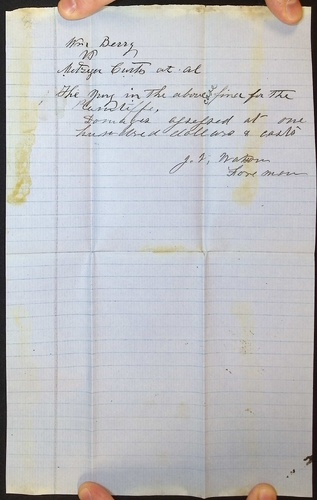 Wm Berry
Vs
Metzger Curts et al
The Jury in the above, finer for the
Plaintiffe,
Domages assessed at one
hundered dollars & costs
J. V. Watson
Fore man